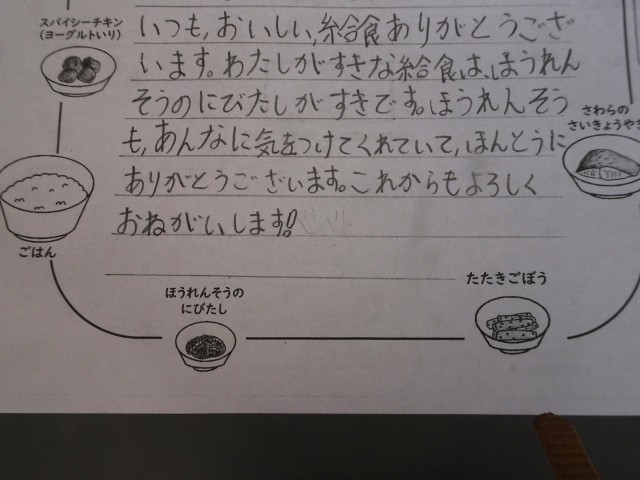 スパイシーチキン
(ヨーグルトいり)
いつも,おいしい,給食ありがとうござ
います。わたしがすきな給食は、ほうれん
そうのにびたしがすきです。ほうれんそう
も,あんなに気をつけてくれていて,ほんとうに
ありがとうございます。これからもよろしく
おねがいします!
さわらの
さいきょうやき
ごはん
ほうれんそうの
にびたし
たたきごぼう